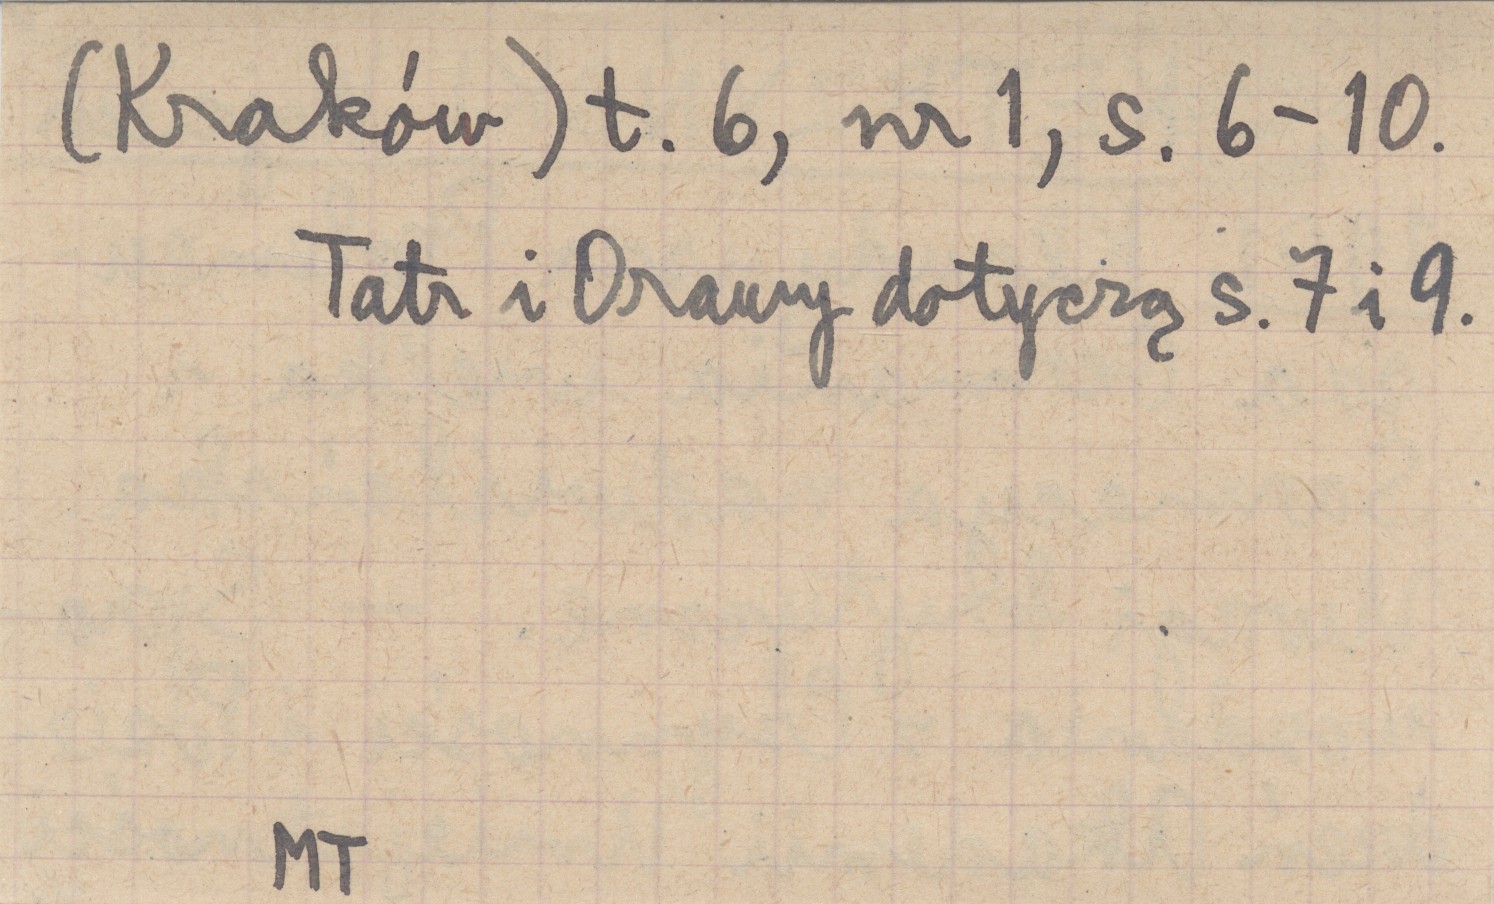 (Kraków) t. 6, nr 1, s. 6-10.
Tatr i Orawy dotyczą s. 7 i 9.
MT